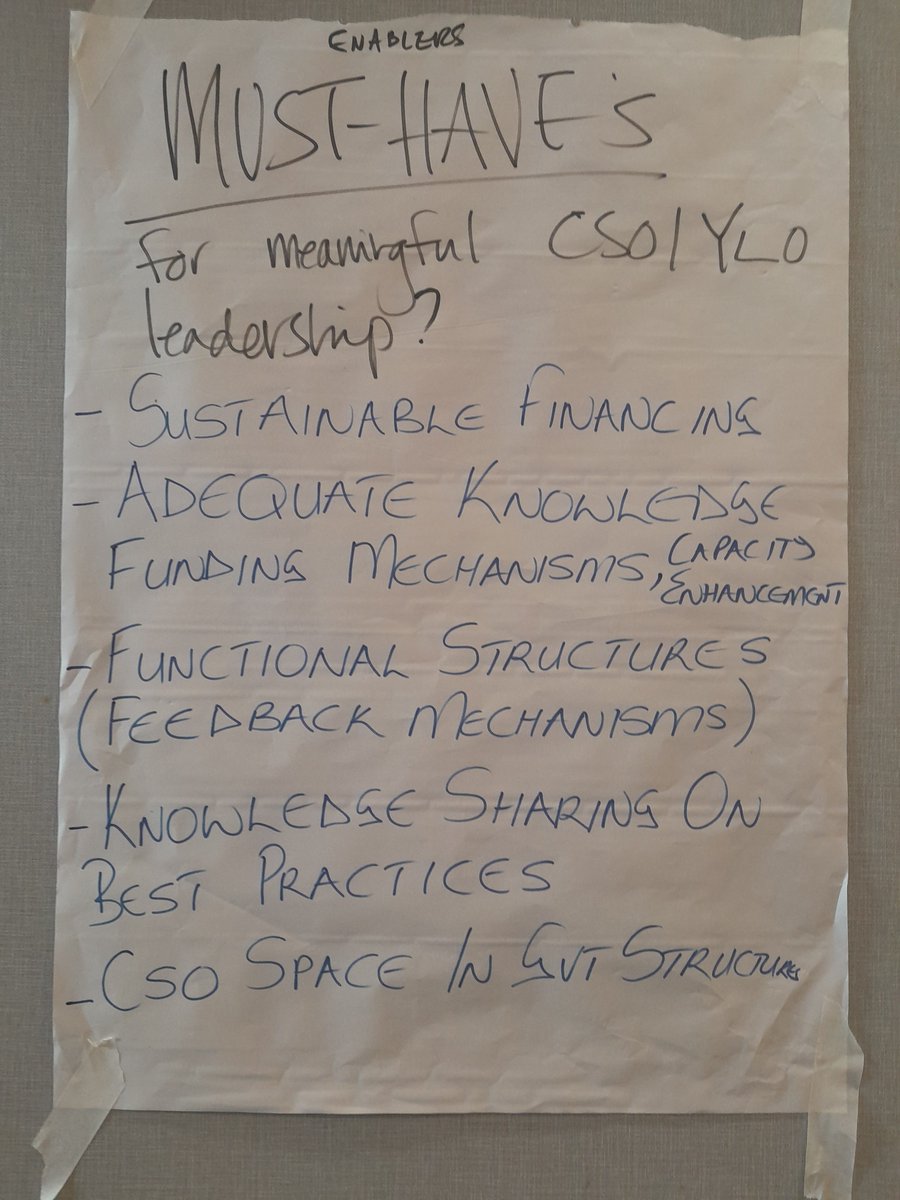 ENABLERS
MUST-HAVE's
for meaningful CSO/YLO
leadership?
- SUSTAINABLE FINANCING
- ADEQUATE KNOWLEDGE
FUNDING MECHANISMS, CAPACITY
ENHANCEMENT
- FUNCTIONAL STRUCTURES
(FEEDBACK MECHANISMS)
- KNOWLEDGE SHARING ON
BEST PRACTICES
- CSO SPACE IN GVT STRUCTURES